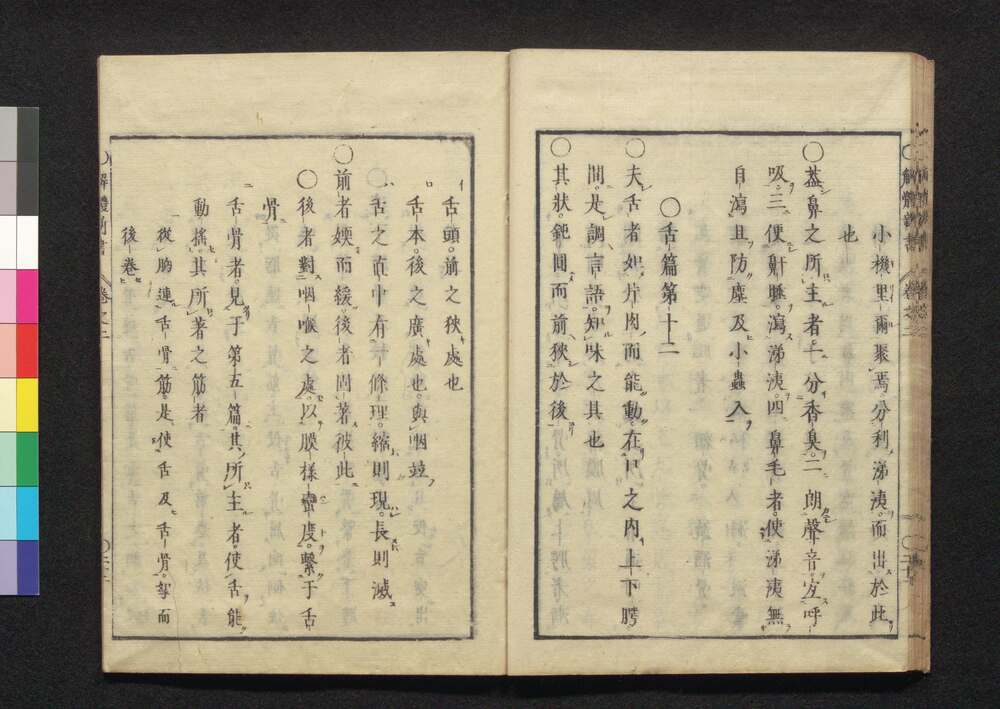 小機里爾聚焉分利涕洟而出於此
也
○蓋鼻之所主者一分香臭二朗聲音宏呼
吸三便鼾睡瀉涕洟四鼻毛者使涕洟無
自瀉且防塵及小蟲入
○舌篇第十二
○夫舌者如片肉而能動在口之内上下腭
間是調言語知味之具也
○其狀鈍圓而前狹於後
イ
舌頭。前之狹處也
ロ
舌本。後之廣處也。與咽竝
ハ
○舌之直中有條理。縮則現。長則滅
○前者耎而緩。後者固著彼此
○後者。對咽喉之處。以膜様蛮度。繋于舌
骨
ニ
舌骨者。見于第五篇。其所主者。使舌能
動搖。其所著之筋者
從胸連舌骨筋。是使舌及舌骨。
後卷
解體新書
卷之二